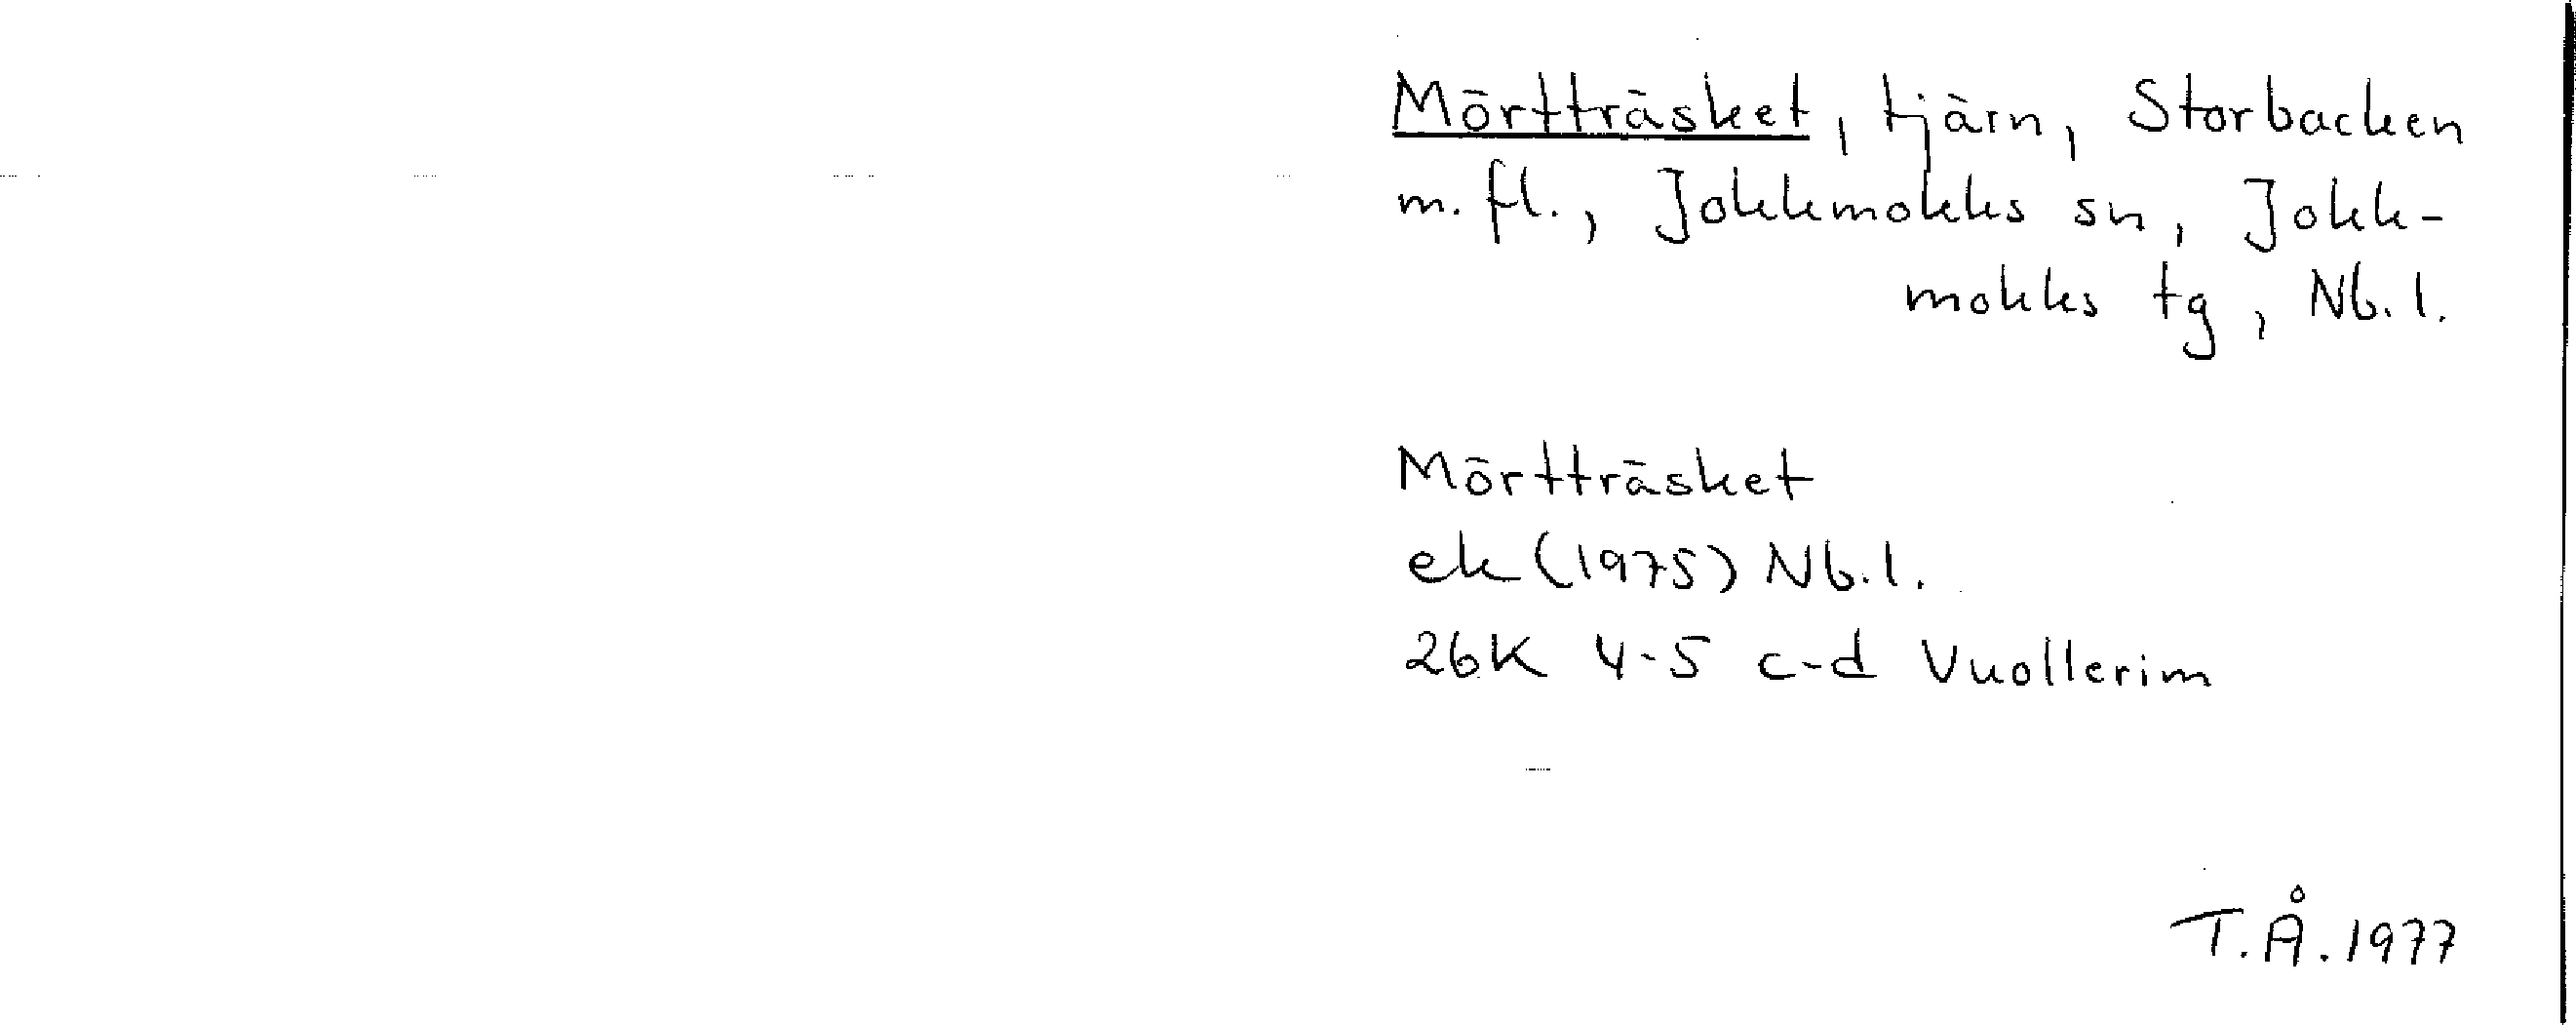 Mörtträsket, tjärn, Storbacken
m. fl., Jokkmokks sn, Jokk-
mokks tg, Nb. l.
Mörtträsket
ek (1975) Nb. l.
26K 4-5 c-d Vuollerim
T. Å. 1977